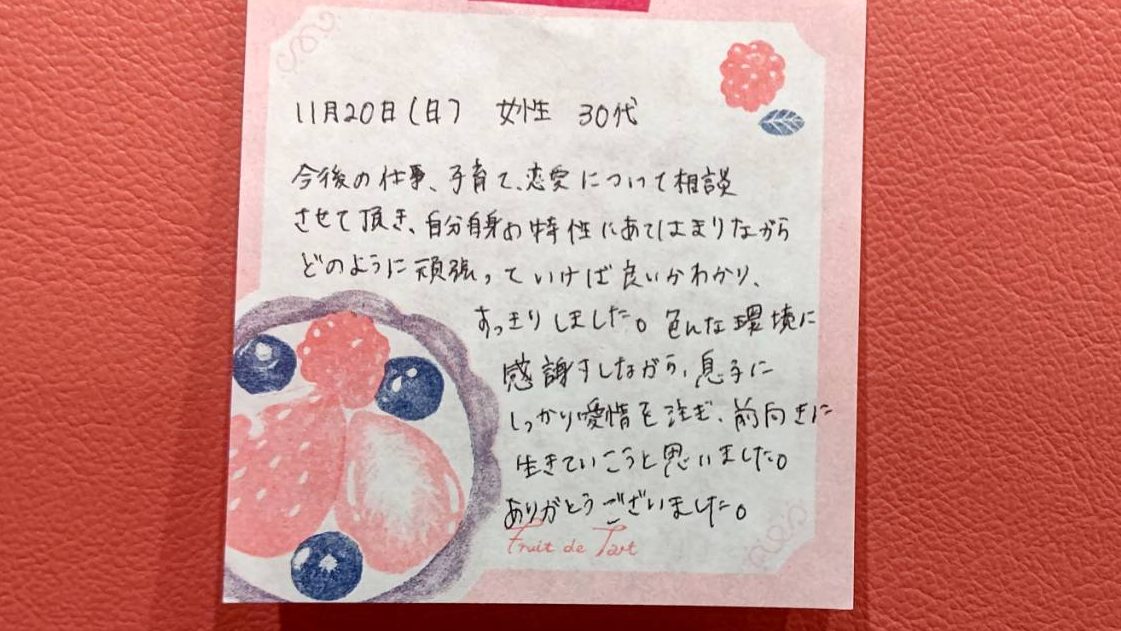 11月20日(日) 女性 30代
今後の仕事、子育て、恋愛について相談
させて頂き、自分自身の特性にあてはまりながら
どのように頑張っていけば良いかわかり、
すっきりしました。色んな環境に
感謝すしながら、息子に
しっかり愛情を注ぎ、前向きに
生きていこうと思いました。
ありがとうございました。
Fruit de Tart